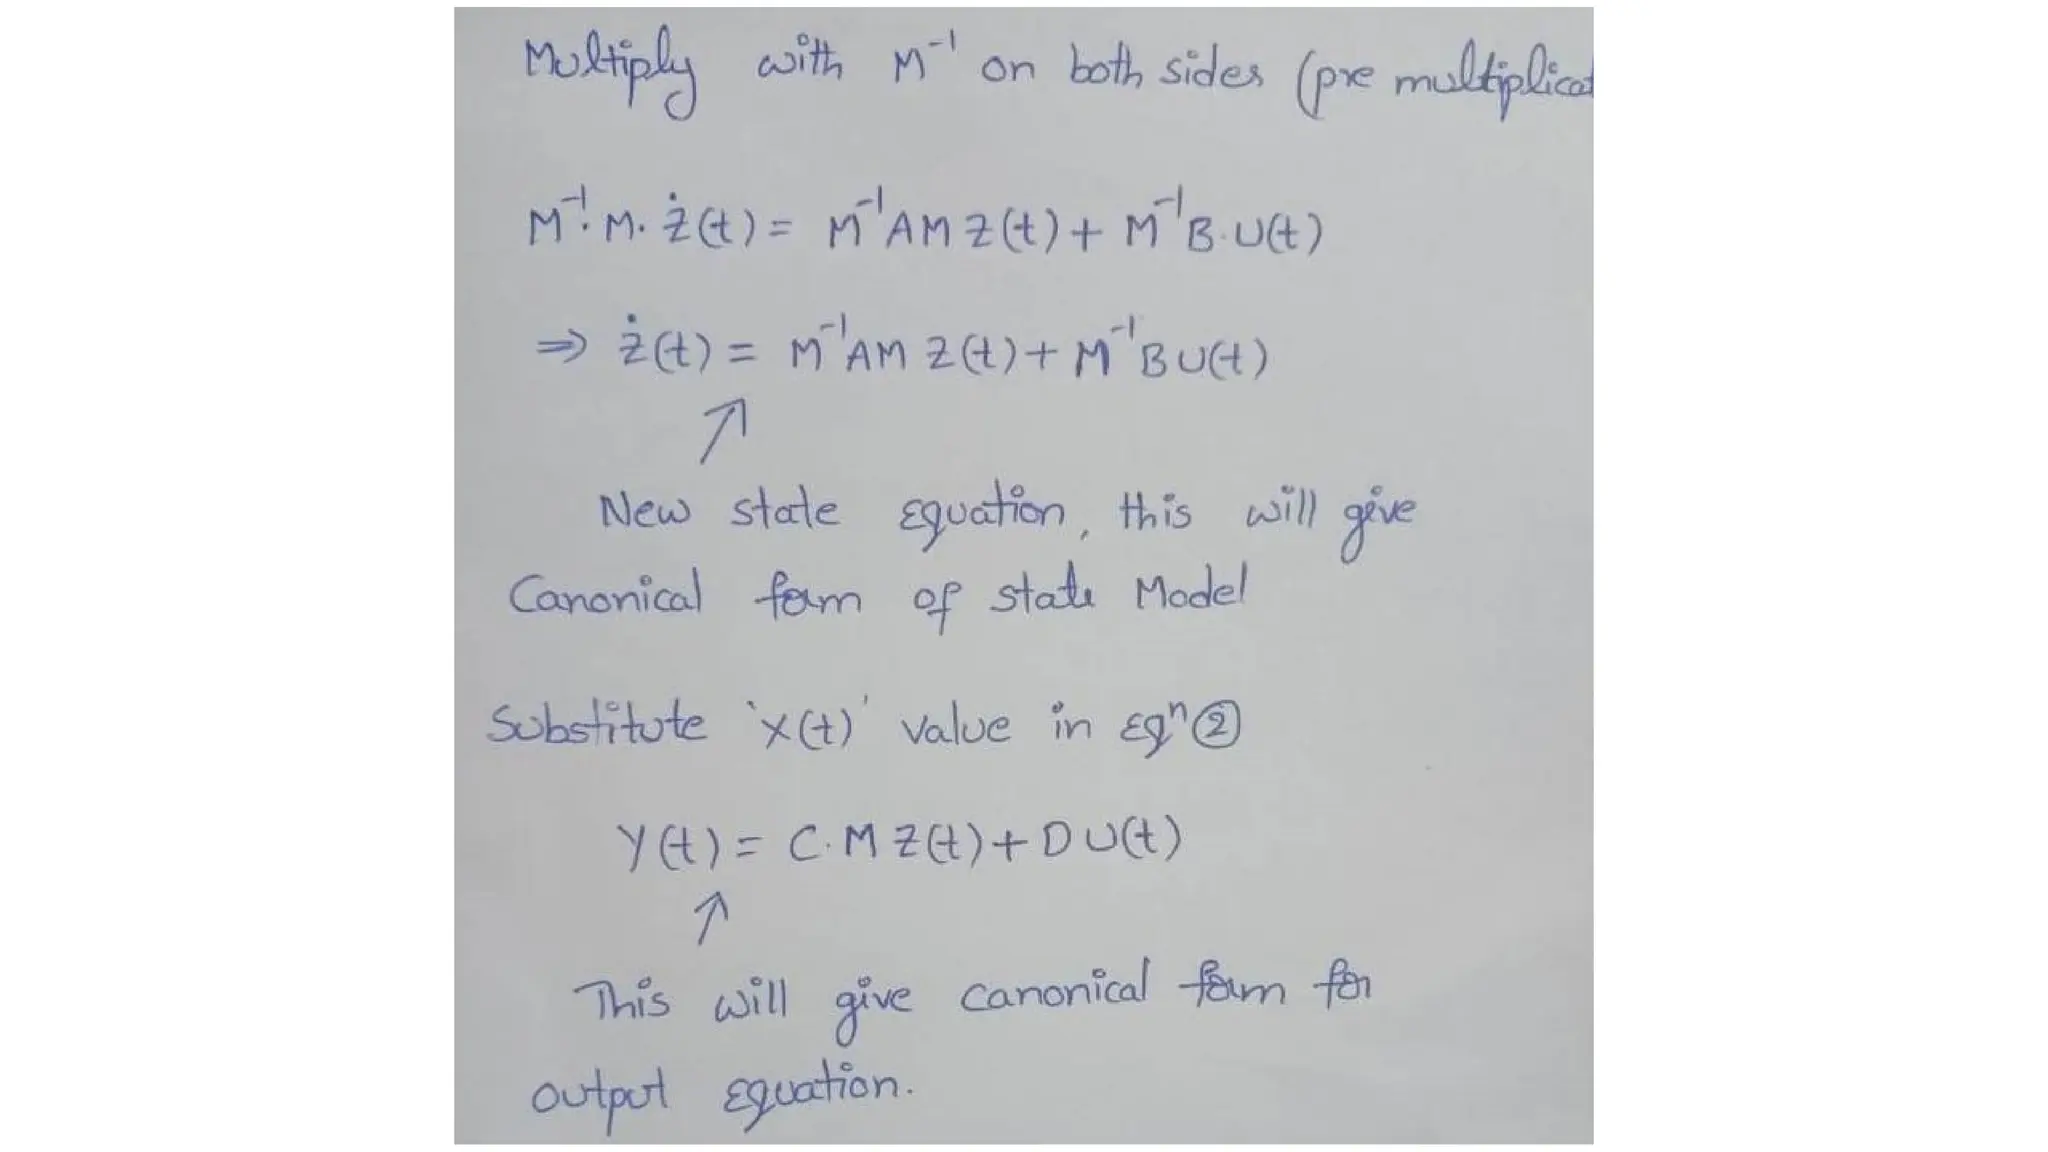 Multiply with M⁻¹ on both sides (pre multiplicat
M⁻¹. M. Ż(t) = M⁻¹AM Z(t) + M⁻¹B.U(t)
⇒ Ż(t) = M⁻¹AM Z(t) + M⁻¹B U(t)
↗
New state Equation, this will give
Canonical form of state Model
Substitute 'X(t)' value in Eqⁿ ②
Y(t) = C.M Z(t) + D U(t)
↗
This will give canonical form for
output Equation.